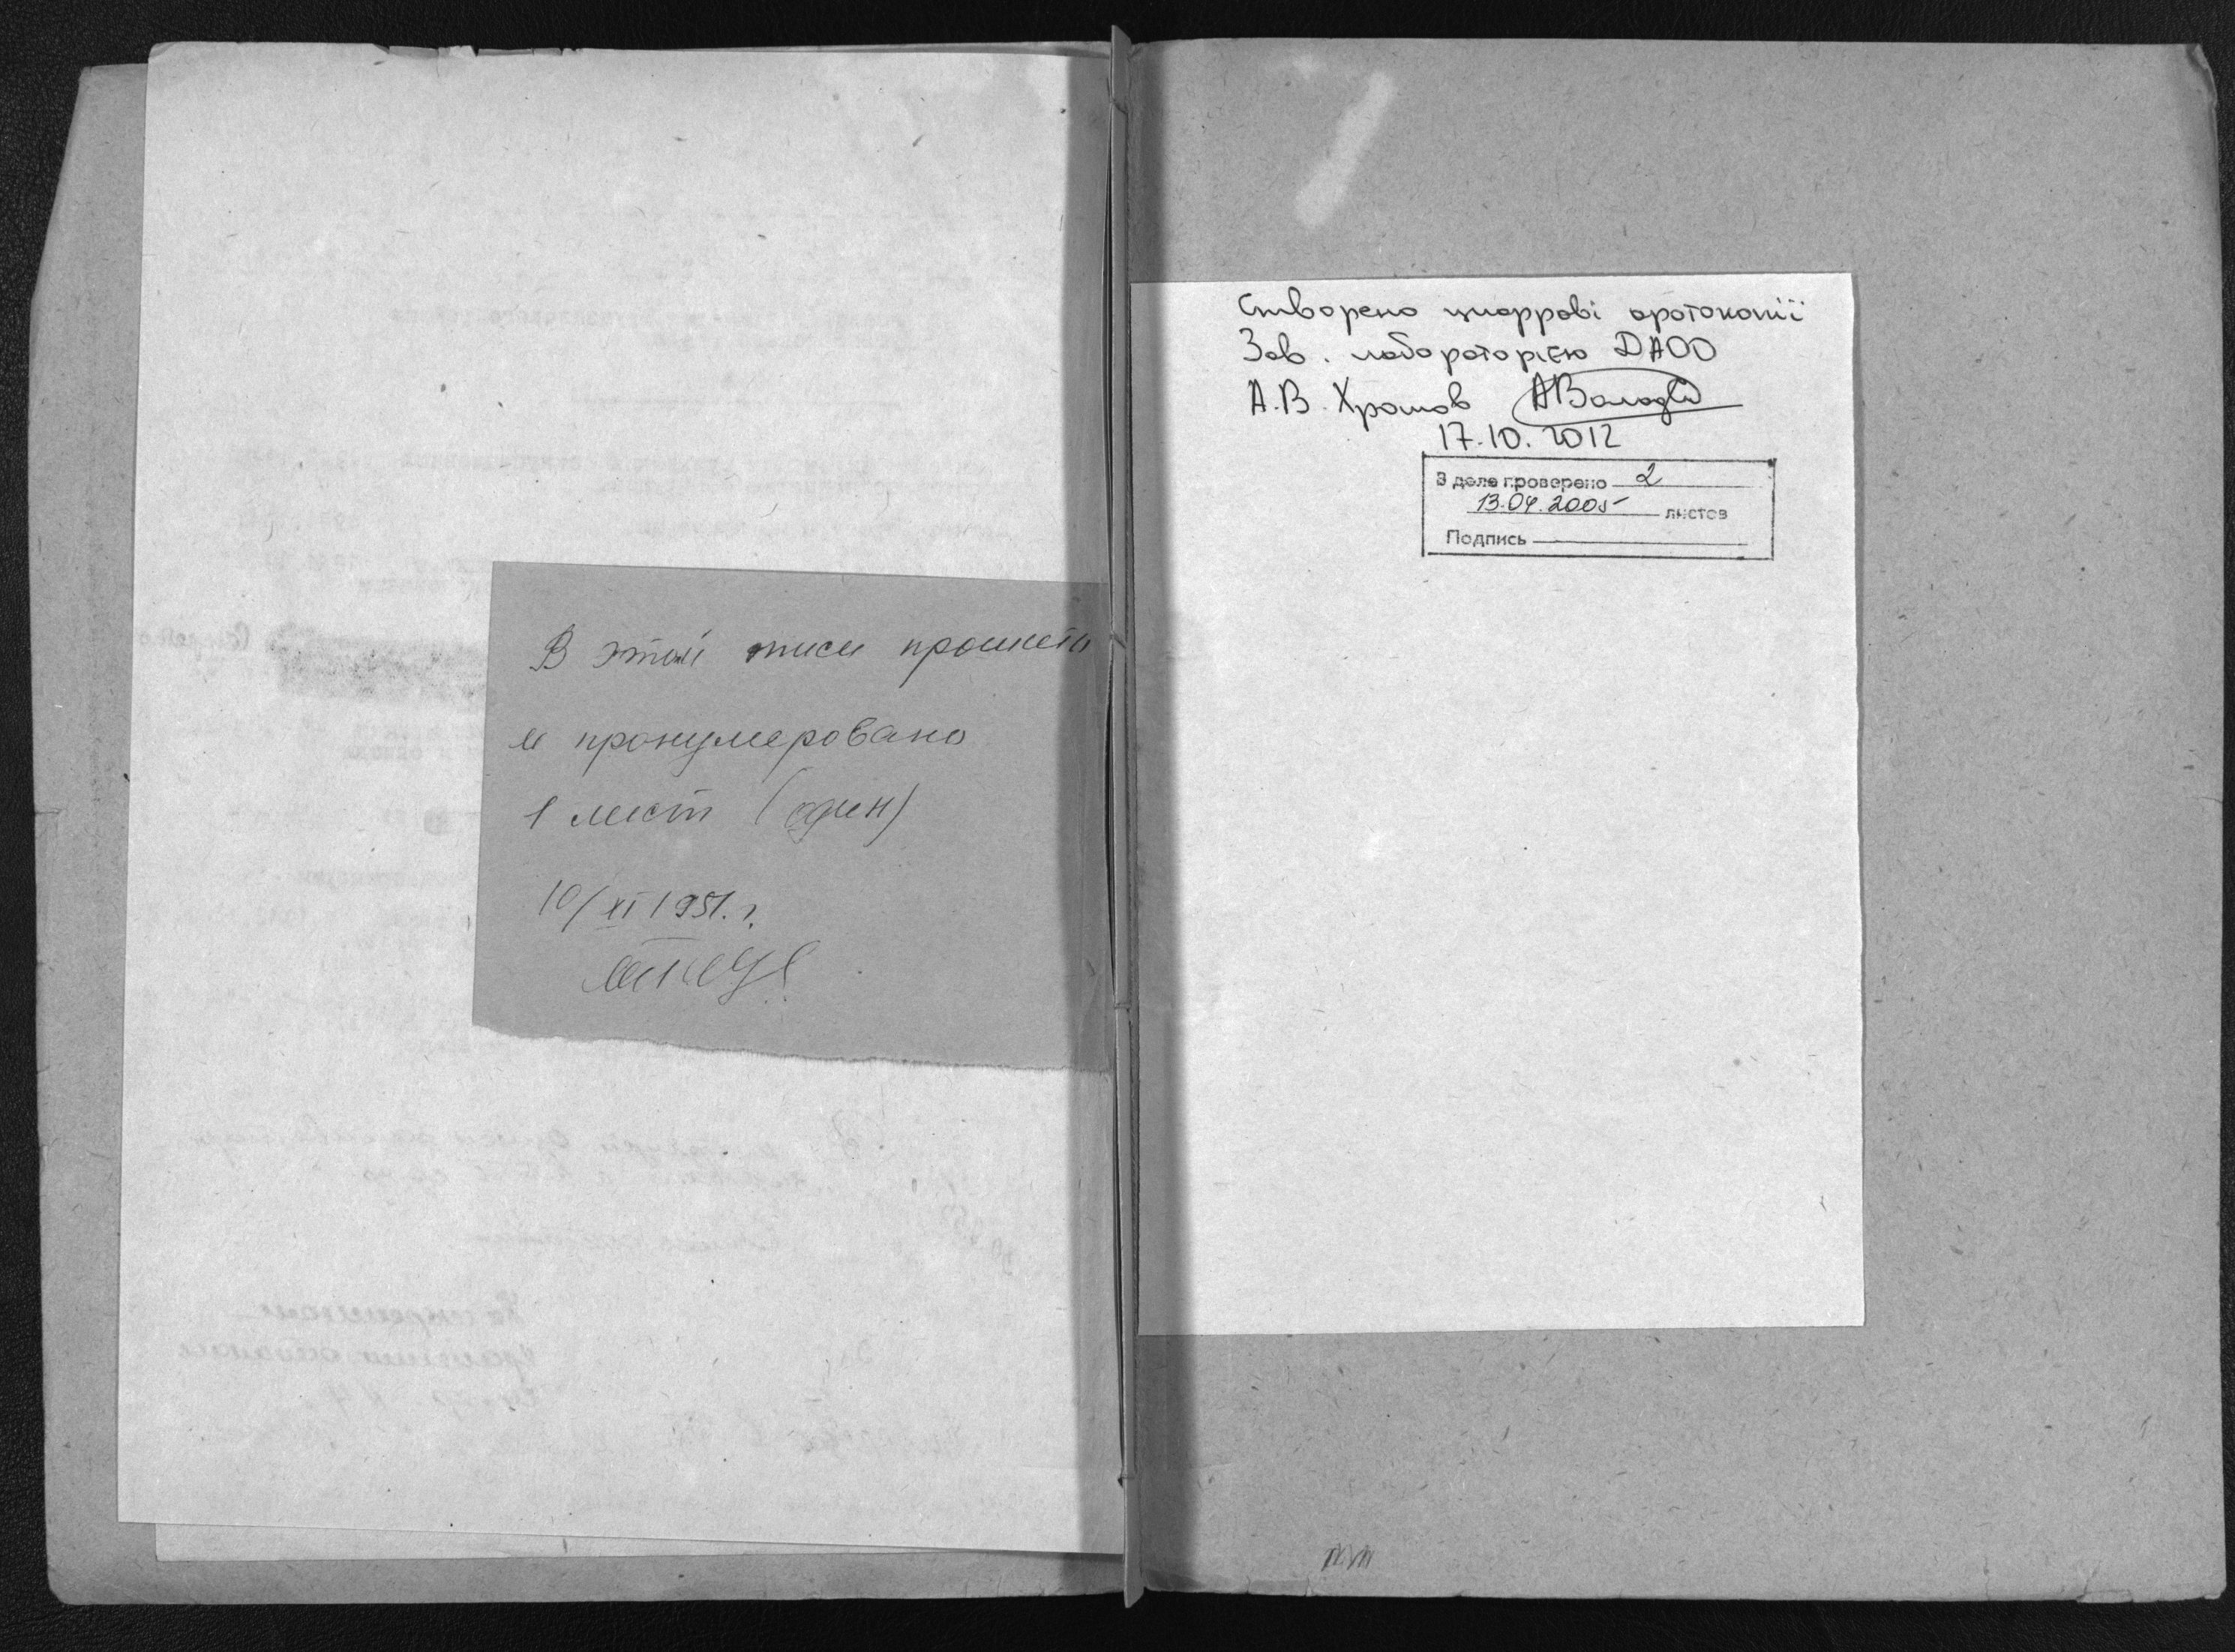 В этой описи прошито
и пронумеровано
1 лист (один)
10/XI 1951. г.
Створено цифрові фотокопії
Зав. лабораторією ДАОО
А.В. Храмов
17.10.2012
В деле проверено 2
13.04.2005 листов
Подпись